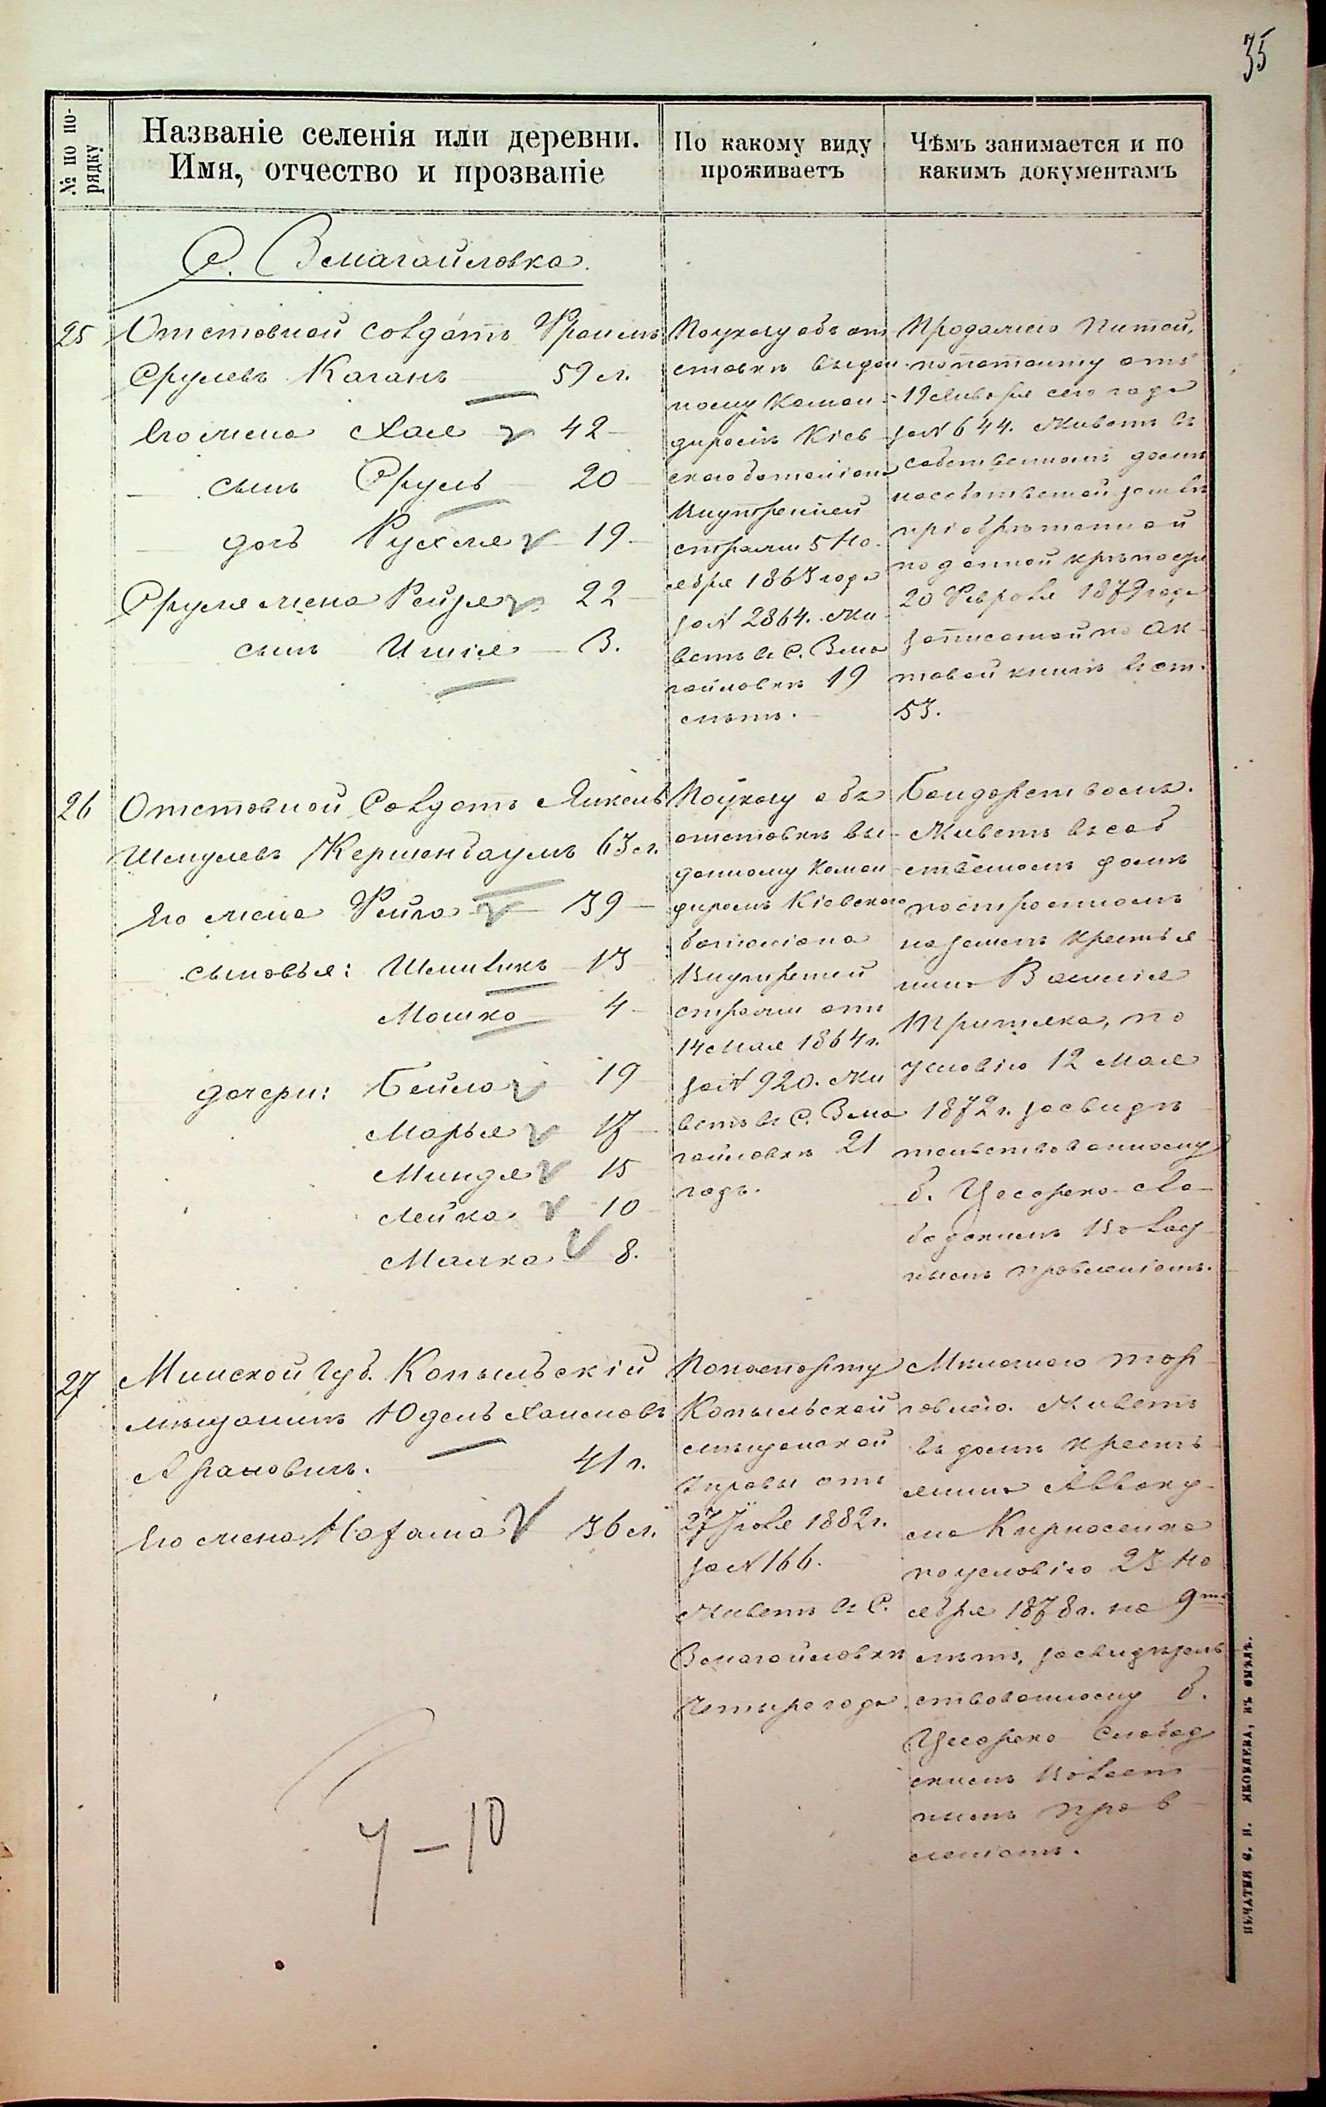 35
№ по по-
рядку
Названіе селенія или деревни.
Имя, отчество и прозваніе
По какому виду
проживаетъ
Чѣмъ занимается и по
какимъ документамъ
С. Змагайловка.
25
Отставной Солдатъ Фроимъ
Срулевъ Каганъ 59 л.
Его жена Хая 42
сынъ Сруль 20
дочь Рухля 19
Сруля жена Рейзя 22
сынъ 3.
По указу объ от
ставкѣ выдан
ному Коман
диромъ Кіев
скаго баталіона
Внутренней
стражи 5 Но
ября 1863 года
за № 2864. Жи
ветъ въ С. Зма
гайловкѣ 19
лѣтъ.
Продажею питей,
по патенту отъ
19 Января сего года
за № 644. Живетъ въ
собственномъ домѣ
на собственной землѣ
пріобрѣтенной
по данной крѣпости
20 Февраля 1879 года
записанной по ак
товой книгѣ въ ст.
53.
26
Отставной Солдатъ Янкель
Шмулевъ Кершенбаумъ 63 л.
Его жена Фейга 39
сыновья: 13
Мошко 4
дочери: Бейла 19
Марья 17
Миндля 15
Лейка 10
Малка 8.
По указу объ
отставкѣ вы
данному Коман
диромъ Кіевскаго
баталіона
Внутренней
стражи отъ
14 Мая 1864 г.
за № 920. Жи
ветъ въ С. Зма
гайловкѣ 21
годъ.
Бондарствомъ.
Живетъ въ соб
ственномъ домѣ
построенномъ
на землѣ крестья
нина Василія
по
условію 12 Мая
1872 г. засвидѣ
тельствованному
б. Цесарско-Сло
бодскимъ Волост
нымъ правленіемъ.
27
Минской губ. Копыльскій
мѣщанинъ Юдель Хаимовъ
Арановичъ. 41 г.
Его жена 36 л.
По паспорту
Копыльской
мѣщанской
управы отъ
27 Іюля 1882 г.
за № 166.
Живетъ въ С.
Змагайловкѣ
четыре года.
Мелочною тор
говлею. Живетъ
въ домѣ крестъ
янина Авваку
ма Кирносенка
по условію 23 Но
ября 1878 г. на 9ть
лѣтъ, засвидѣтель
ствованному б.
Цесарско Слобод
скимъ Волост
нымъ прав
леніемъ.
7 – 10
ПЕЧАТНЯ С. П. ЯКОВЛЕВА, ВЪ